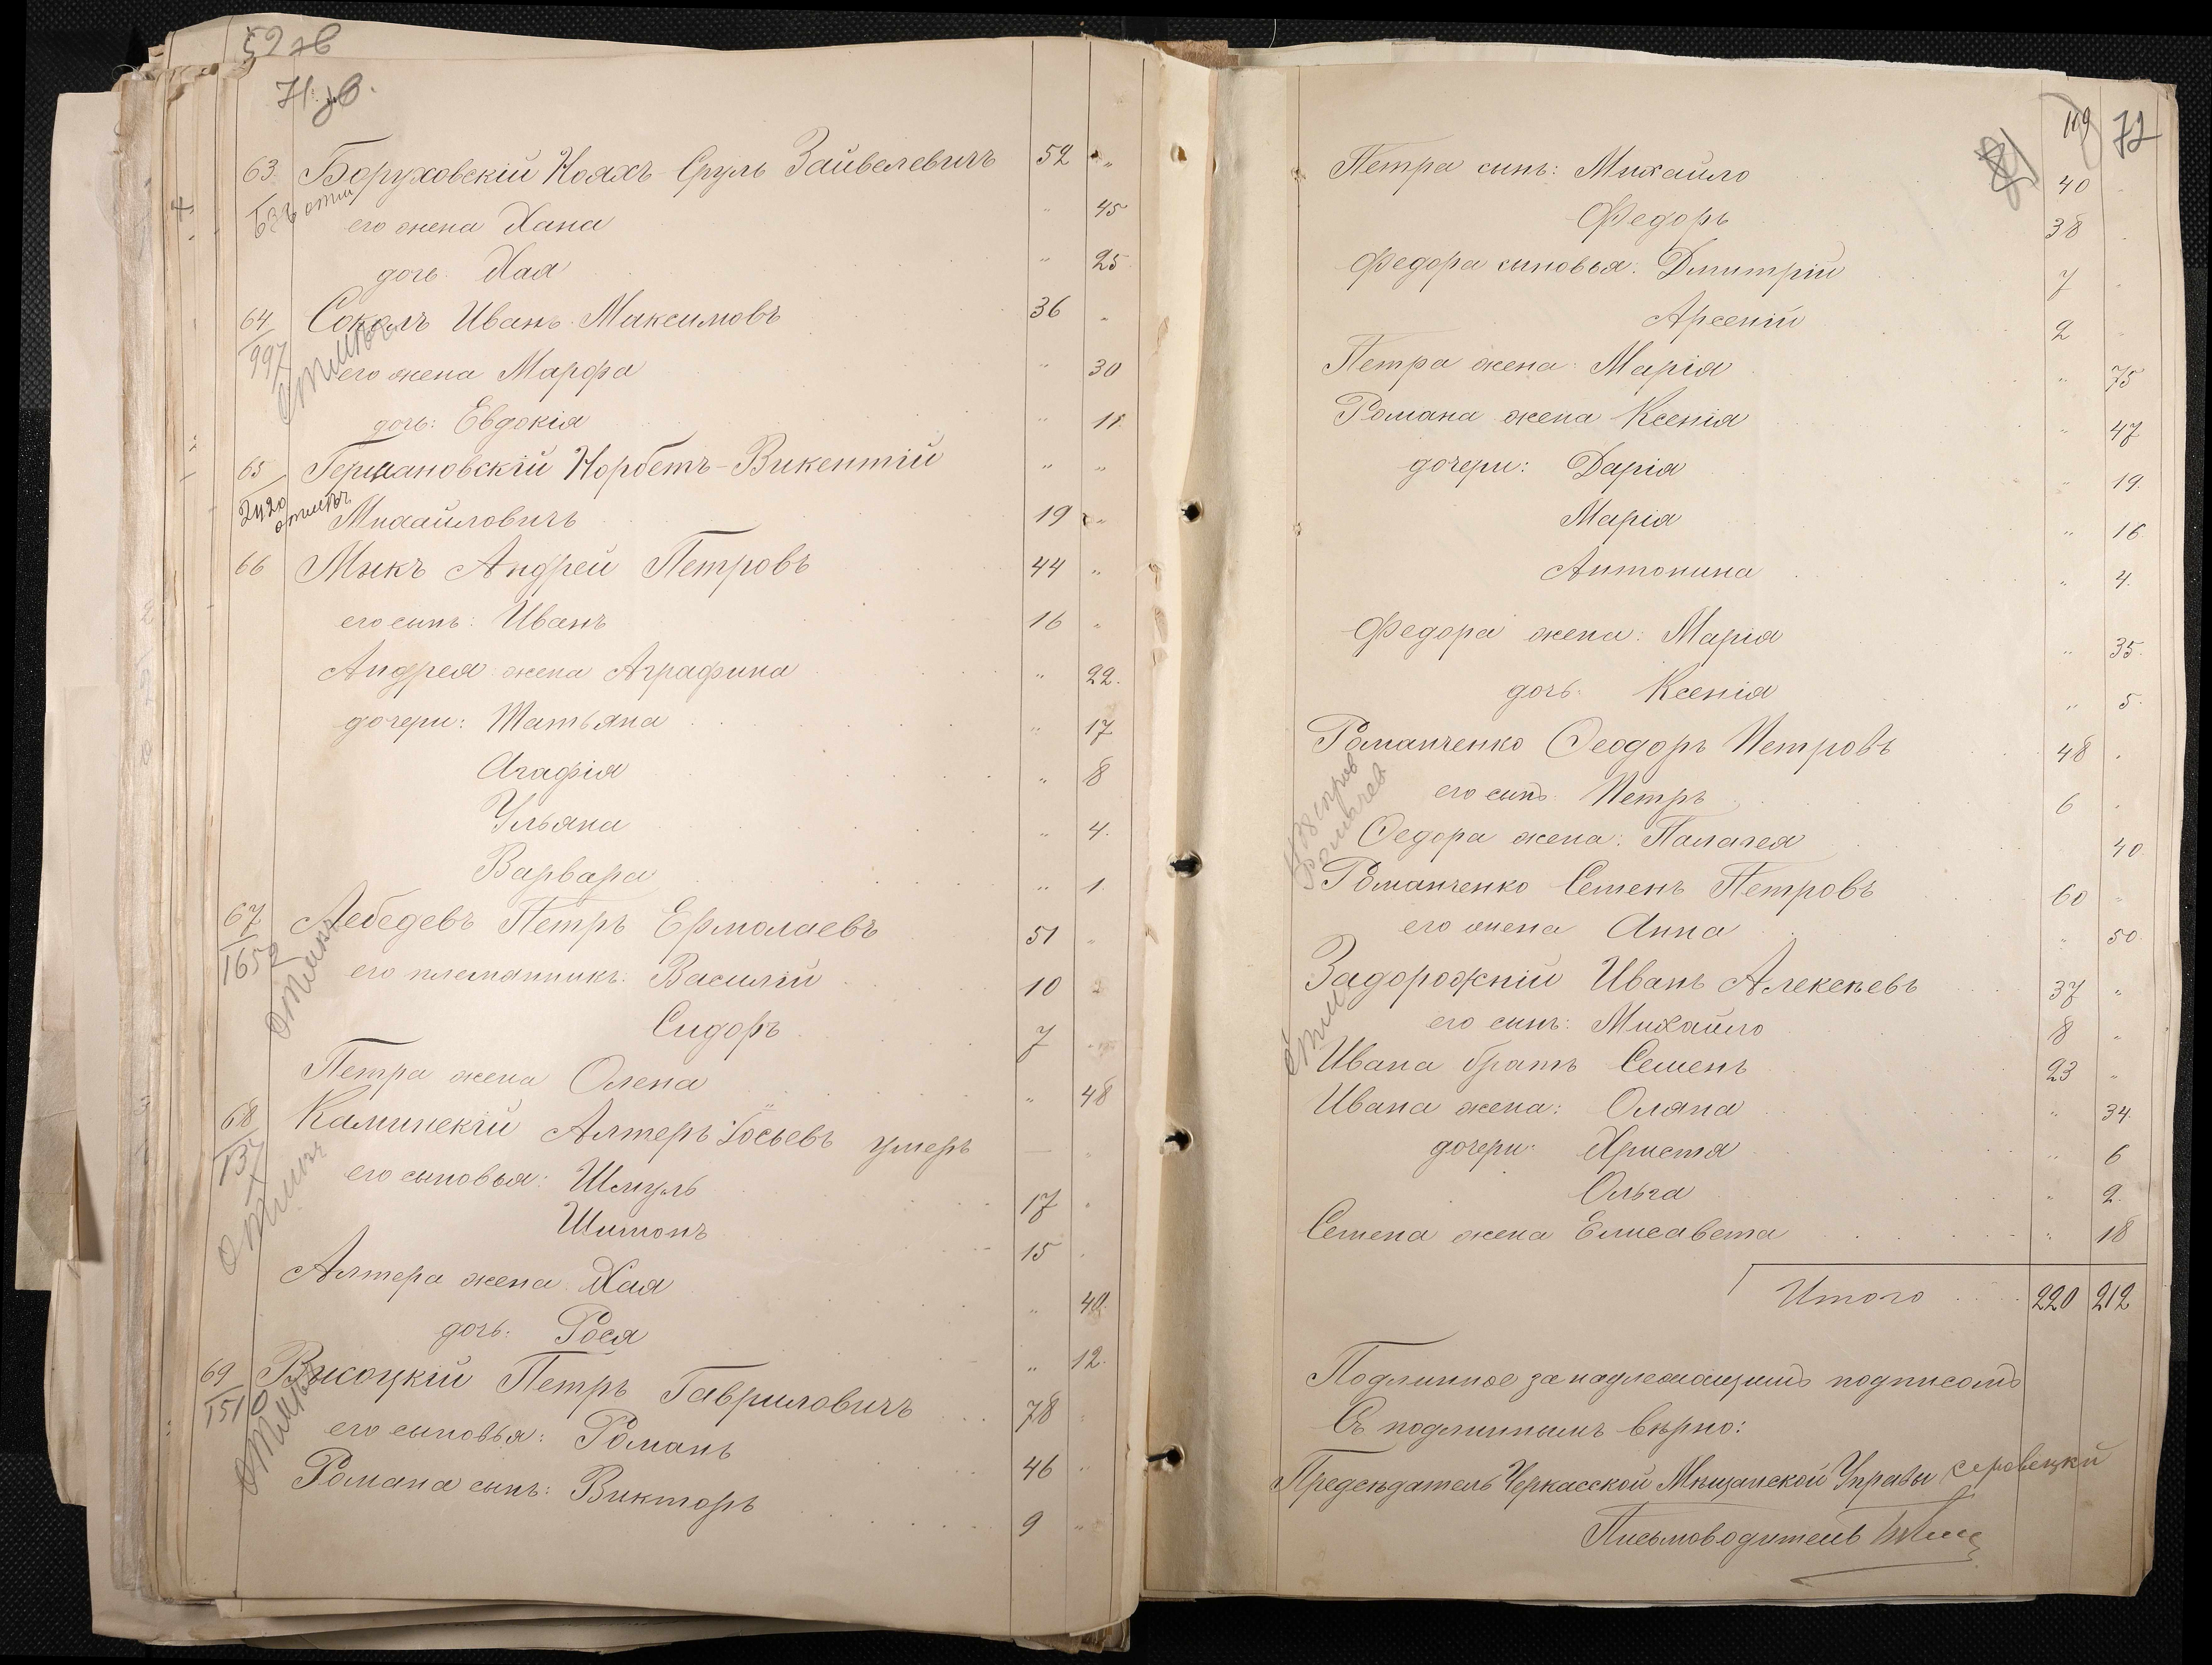 52 зв
71 зв.
63 Боруховскій Ноахъ-Сруль Зайвелевичъ 52 "
его жена Хана " 45
дочь Хая " 25
64 Соколъ Иванъ Максимовъ 36 "
997 отмѣч.
его жена Марфа " 30
дочь: Евдокія " 11
65 Германовскій Норбетъ-Викентій " "
2420 отмѣч
Михайловичъ 19 "
66 Мыкъ Андрей Петровъ 44 "
его сынъ: Иванъ 16 "
Андрея жена Аграфина " 22.
дочери: Татьяна " 17
Агафія " 8
Ульяна " 4.
Варвара " 1
67 Лебедевъ Петръ Ермолаевъ 51 "
1652 отмѣч
его племянникъ: Василій 10
Сидоръ 7
Петра жена Олена " 48
68 Каминскій Алтеръ Іосьевъ умеръ — "
137 отмѣч
его сыновья: Шмуль 17 "
Шимонъ 15
Алтера жена Хая " 40
дочь: Рося " 12.
69 Высоцкій Петръ Гавриловичъ 78
1510 отмѣч
его сыновья: Романъ 46 "
Романа сынъ: Викторъ 9 "
119 72
Петра сынъ: Михайло 40
Федоръ 38
Федора сыновья: Дмитрій 7
Арсеній 2
Петра жена: Марія " 75
Романа жена Ксенія " 47
дочери: Дарія " 19.
Марія " 16
Антонина " 4.
Федора жена: Марія " 35.
дочь: Ксенія " 5
Романченко Ѳеодоръ Петровъ 48 "
его сынъ Петръ 6 "
Ѳедора жена: Палагея 40
Романченко Семенъ Петровъ 60 "
его жена Анна " 50
Задорожній Иванъ Алексѣевъ 37 "
отм
его сынъ: Михайло 8 "
Ивана братъ Семенъ 23 "
Ивана жена: Оляна " 34.
дочери: Христя " 6
Ольга " 2.
Семена жена Елисавета " 18
Итого 220 212
Подлинное за надлежащимъ подписомъ
Съ подлиннымъ вѣрно:
Предсѣдатель Черкасской Мѣщанской Управы
Письмоводитель